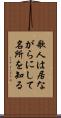 歌人は居な
がらにして
名所を知る